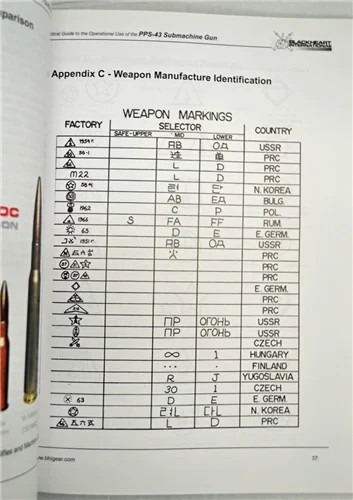 parison
tical Guide to the Operational Use of the PPS-43 Submachine Gun
BLACKHEART
INTERNATIONAL
Appendix C - Weapon Manufacture Identification
WEAPON MARKINGS
FACTORY SELECTOR COUNTRY
SAFE-UPPER MID LOWER
1954 г. АВ ОД USSR
56-1 連 単 PRC
L D PRC
M22 L D PRC
68식 련 단 N. KOREA
АВ ЕД BULG.
1962 C P POL.
1966 S FA FF RUM.
63 D E E. GERM.
1951 г. АВ ОД USSR
五六式 PRC
PRC
PRC
E. GERM.
PRC
PRC
ПР ОГОНЬ USSR
ПР ОГОНЬ USSR
CZECH
∞ 1 HUNGARY
... . FINLAND
R J YUGOSLAVIA
30 1 CZECH
63 D E E. GERM.
련 단 N. KOREA
五六式 L D PRC
OC
ION
ifles and Machin
w.bhigear.com
37